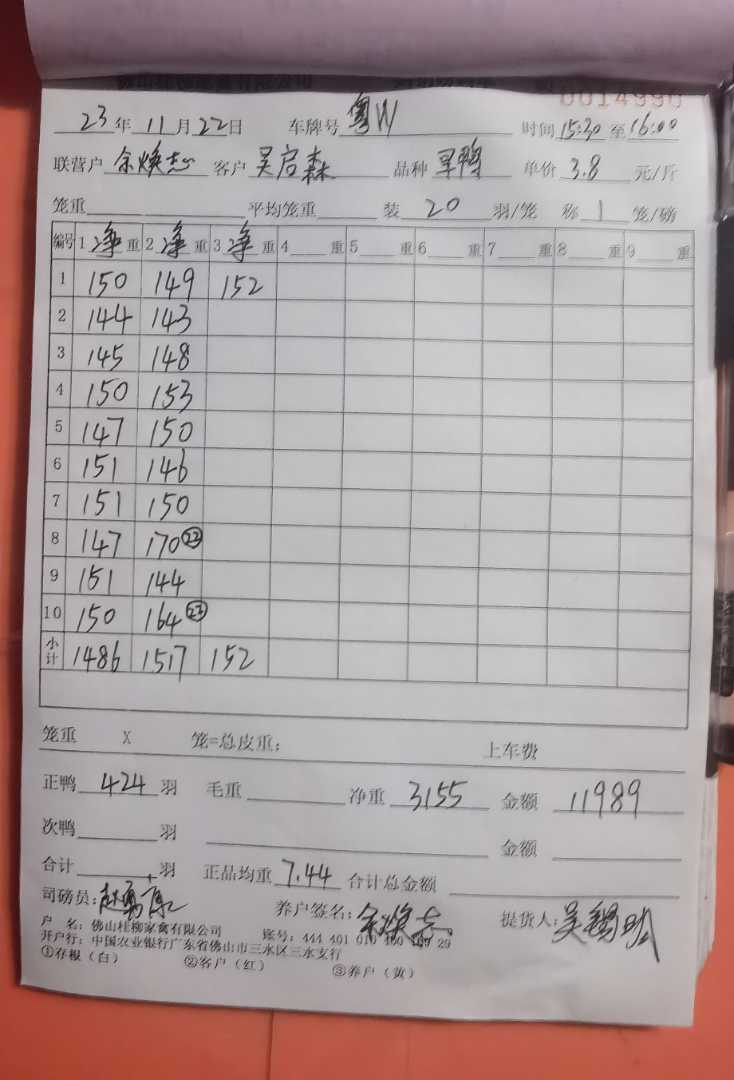 0014990
23年11月22日 车牌号 粤W 时间 15:30 至 16:00
联营户 余焕志 客户 吴启森 品种 旱鸭 单价 3.8 元/斤
笼重 平均笼重 装 20 羽/笼 称 1 笼/磅
编号 1 净 重 2 净 重 3 净 重 4 重 5 重 6 重 7 重 8 重 9 重
1 150 149 152
2 144 143
3 145 148
4 150 153
5 147 150
6 151 146
7 151 150
8 147 170 23
9 151 144
10 150 164 23
小计 1486 1517 152
笼重 X 笼=总皮重: 上车费
正鸭 424 羽 毛重 净重 3155 金额 11989
次鸭 羽 金额
合计 羽 正品均重 7.44 合计总金额
司磅员: 养户签名: 余焕志 提货人: 吴锡明
户 名: 佛山桂柳家禽有限公司 账号: 444 401 010 400 169 29
开户行: 中国农业银行广东省佛山市三水区三水支行
①存根(白) ②客户(红) ③养户(黄)